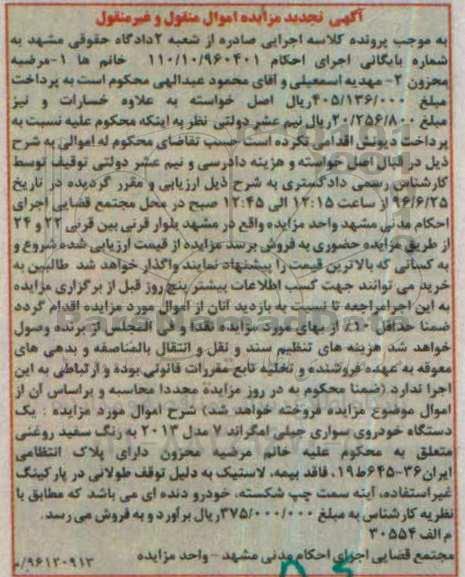 آگهی تجدید مزایده اموال منقول و غیرمنقول
به موجب پرونده کلاسه اجرایی صادره از شعبه ۲دادگاه حقوقی مشهد به
شماره بایگانی اجرای احکام ۱۱۰/۱۰/۹۶۰۴۰۱ خانم ها ۱-مرضیه
محزون ۲- مهدیه اسمعیلی و آقای محمود عبدالهی محکوم است به پرداخت
مبلغ ۴۰۵/۱۳۶/۰۰۰ریال اصل خواسته به علاوه خسارات و نیز
مبلغ ۲۰/۲۵۶/۸۰۰ریال نیم عشر دولتی نظر به اینکه محکوم علیه نسبت به
پرداخت دیونش اقدامی نکرده است حسب تقاضای محکوم له اموالی به شرح
ذیل در قبال اصل خواسته و هزینه دادرسی و نیم عشر دولتی توقیف توسط
کارشناس رسمی دادگستری به شرح ذیل ارزیابی و مقرر گردیده در تاریخ
۹۶/۶/۲۵ از ساعت ۱۲:۱۵ الی ۱۲:۴۵ صبح در محل مجتمع قضایی اجرای
احکام مدنی مشهد واحد مزایده واقع در مشهد بلوار قرنی بین قرنی ۲۲ و ۲۴
از طریق مزایده حضوری به فروش برسد مزایده از قیمت ارزیابی شده شروع و
به کسانی که بالاترین قیمت را پیشنهاد نمایند واگذار خواهد شد طالبین به
خرید می توانند جهت کسب اطلاعات بیشتر پنج روز قبل از برگزاری مزایده
به این اجرامراجعه تا نسبت به بازدید آنان از اموال مورد مزایده اقدام گردد
ضمنا حداقل ۱۰٪ از بهای مورد مزایده نقدا و فی المجلس از برنده وصول
خواهد شد هزینه های تنظیم سند و نقل و انتقال بالمناصفه و بدهی های
معوقه به عهده فروشنده و تخلیه تابع مقررات قانونی بوده و ارتباطی به این
اجرا ندارد (ضمنا محکوم به در روز مزایده مجددا محاسبه و براساس آن از
اموال موضوع مزایده فروخته خواهد شد) شرح اموال مورد مزایده : یک
دستگاه خودروی سواری جیلی امگراند ۷ مدل ۲۰۱۳ به رنگ سفید روغنی
متعلق به محکوم علیه خانم مرضیه محزون دارای پلاک انتظامی
ایران۳۶-۶۴۵ط۱۹، فاقد بیمه، لاستیک به دلیل توقف طولانی در پارکینگ
غیراستفاده، آینه سمت چپ شکسته، خودرو دنده ای می باشد که مطابق با
نظریه کارشناس به مبلغ ۳۷۵/۰۰۰/۰۰۰ریال برآورد و به فروش می رسد.
م الف ۳۰۵۵۴
مجتمع قضایی اجرای احکام مدنی مشهد - واحد مزایده
۹۶۱۲۰۹۱۳/م